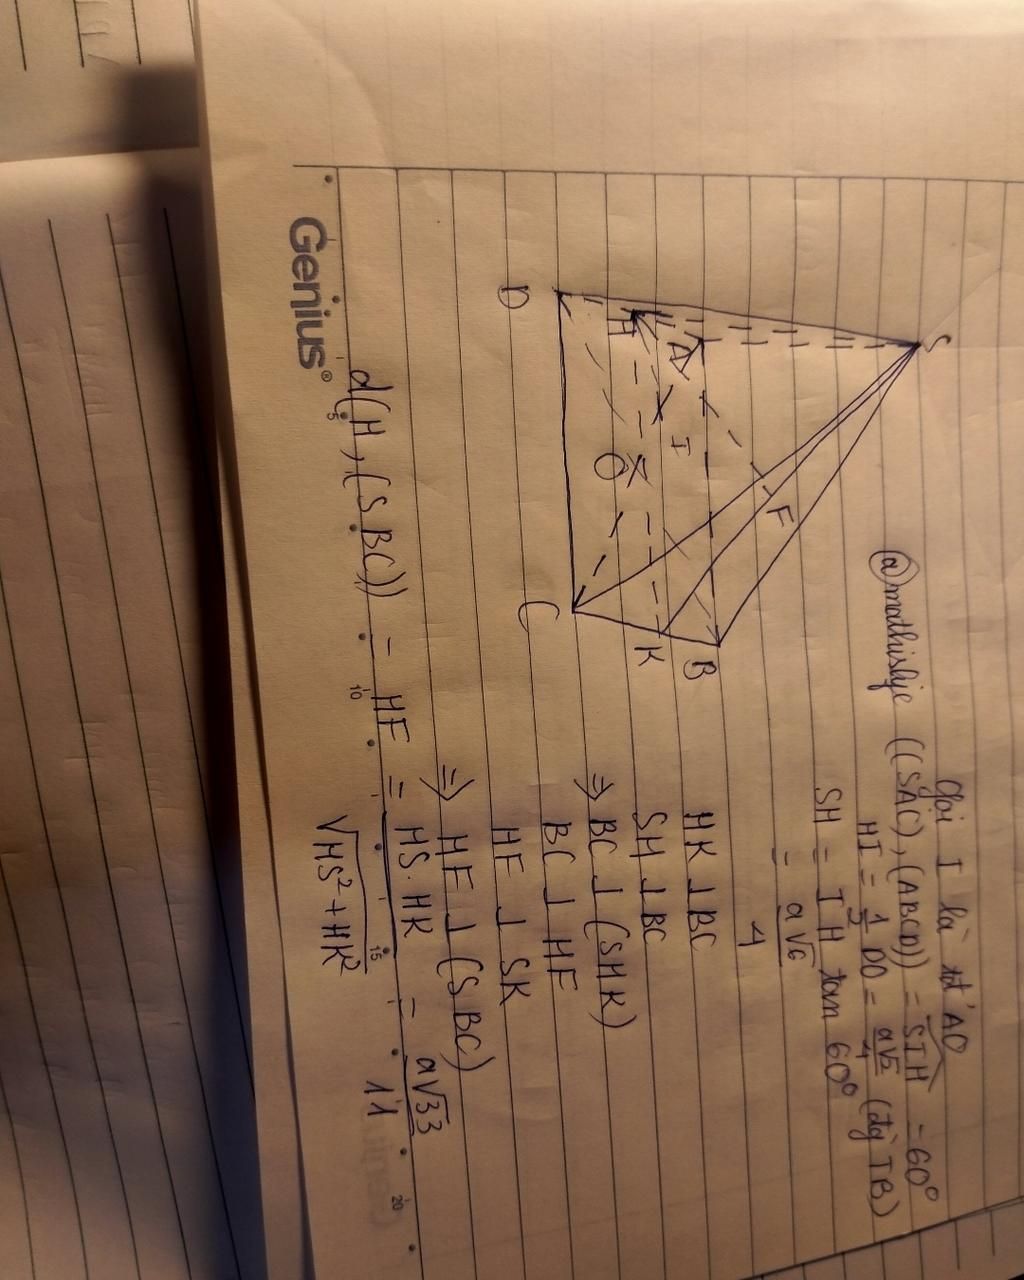 Gọi I là tđ AO
@mathislife ((SAC),(ABCD)) = SIH = 60°
HI = 1/2 DO = a√2/4 (đg TB)
SH = IH tan 60°
= a√6/4
HK ⊥ BC
SH ⊥ BC
⇒ BC ⊥ (SHK)
BC ⊥ HF
HF ⊥ SK
⇒ HF ⊥ (SBC)
d(H,(SBC)) = HF = HS.HK/√HS²+HK² = a√33/11
S
F
A
I
B
H
K
O
D
C
Genius®
5
10
15
20